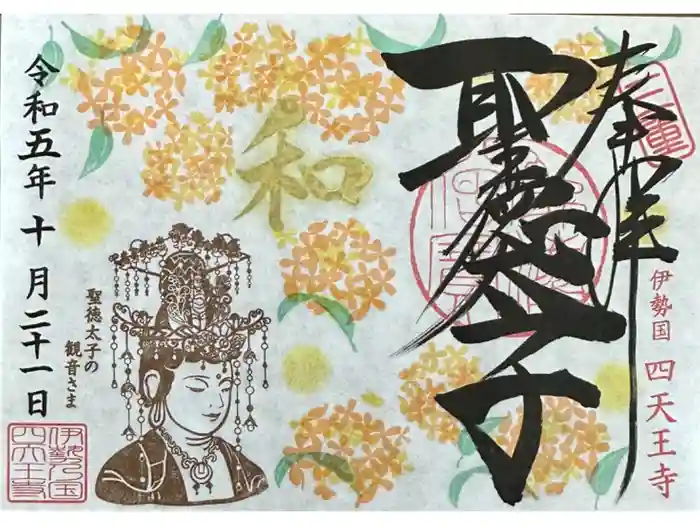 奉拝
三重
聖徳太子
伊勢国 四天王寺
和
聖徳太子の
観音さま
令和五年十月二十一日
伊勢乃国
四天王寺